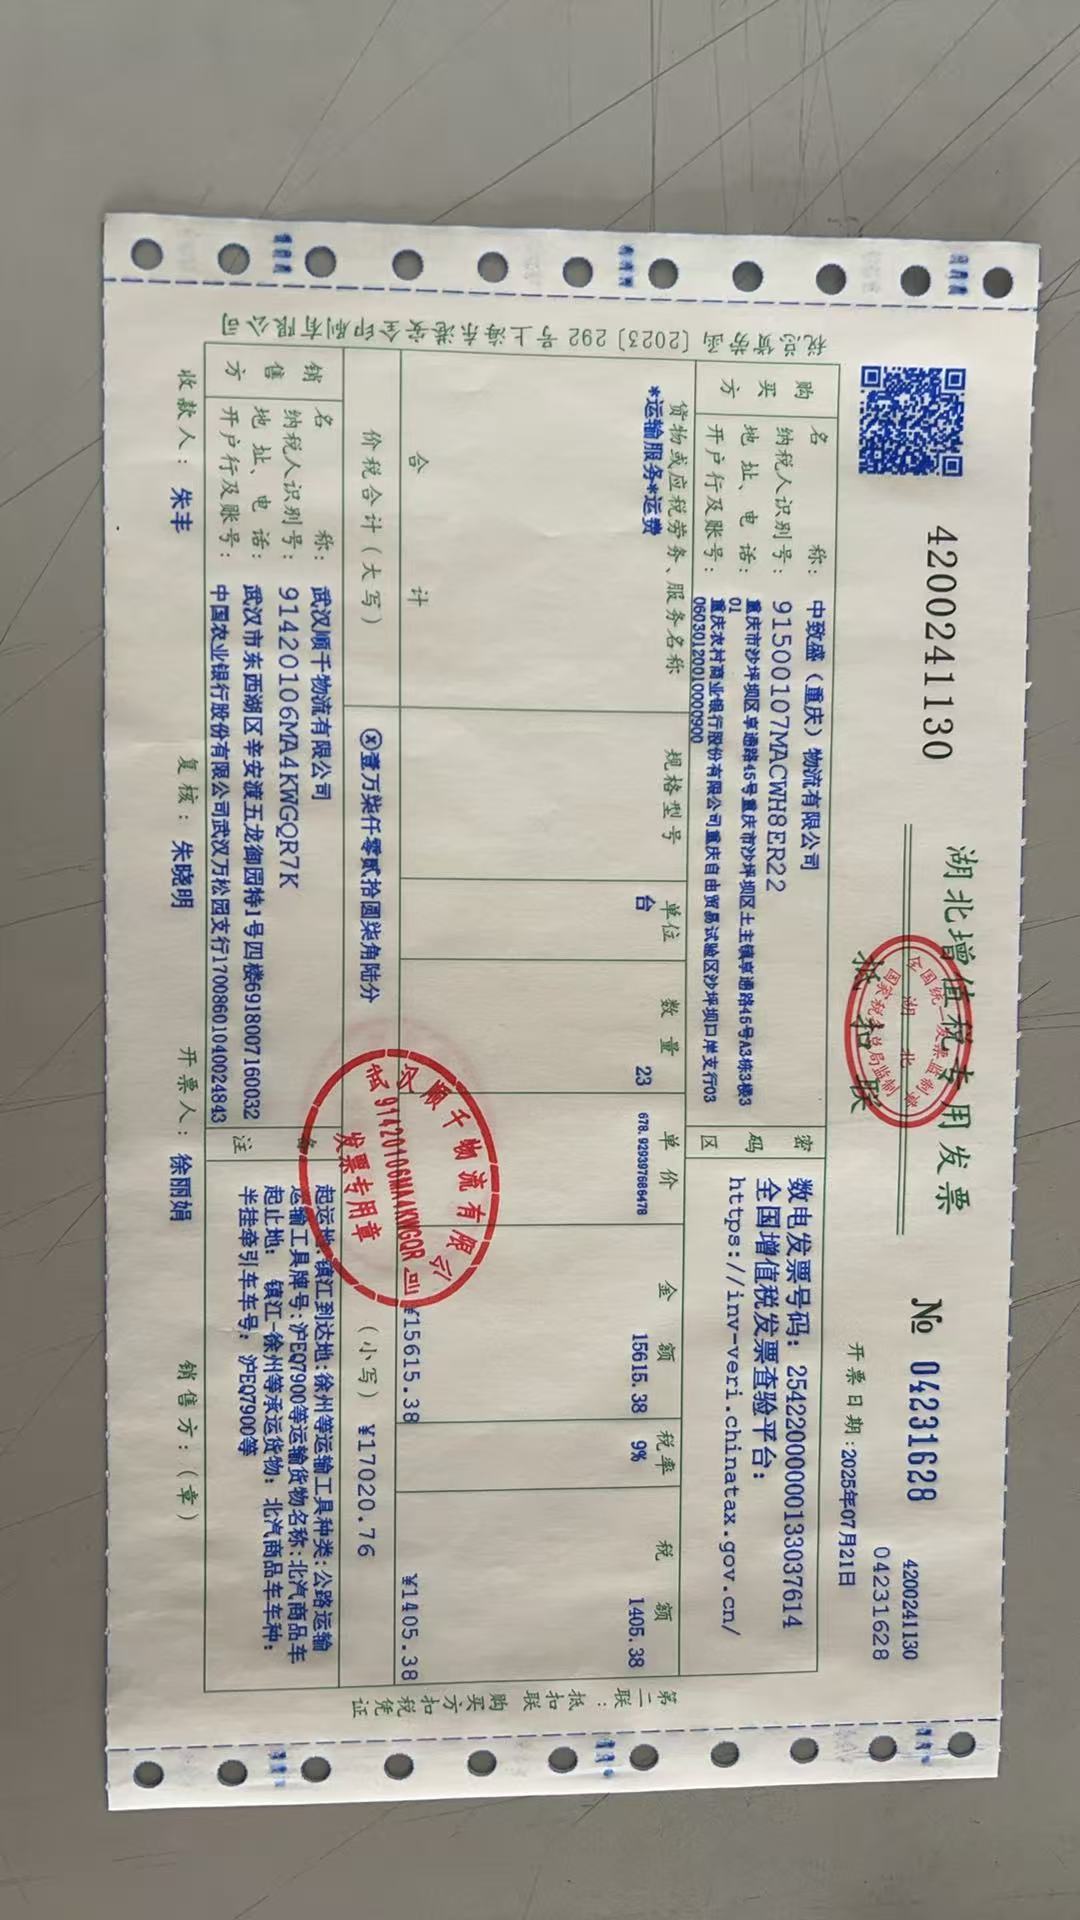 4200241130
湖北增值税专用发票
抵扣联
全国统一发票监制章
湖北
国家税务总局监制
№ 04231628
4200241130
04231628
开票日期:2025年07月21日
税总货劳函〔2023〕292号上海东港安全印刷有限公司
购买方
名称:中致盛(重庆)物流有限公司
纳税人识别号:91500107MACWH8ER22
地址、电话:重庆市沙坪坝区享通路45号重庆市沙坪坝区土主镇享通路45号A3栋3楼3
01
开户行及账号:重庆农村商业银行股份有限公司重庆自由贸易试验区沙坪坝口岸支行03
06030120010000900
密码区
数电发票号码: 25422000000133037614
全国增值税发票查验平台:
https://inv-veri.chinatax.gov.cn/
货物或应税劳务、服务名称 规格型号 单位 数量 单价 金额 税率 税额
*运输服务*运费 台 23 678.929397686478 15615.38 9% 1405.38
合计 ¥15615.38 ¥1405.38
价税合计(大写) ⓧ壹万柒仟零贰拾圆柒角陆分 (小写) ¥17020.76
销售方
名称:武汉顺千物流有限公司
纳税人识别号:91420106MA4KWGQR7K
地址、电话:武汉市东西湖区辛安渡五龙御园特1号四楼69180071600032
开户行及账号:中国农业银行股份有限公司武汉万松园支行17008601040024843
备注
起运地:镇江到达地:徐州等运输工具种类:公路运输
运输工具牌号:沪EQ7900等运输货物名称:北汽商品车
起止地: 镇江-徐州等承运货物: 北汽商品车车种:
半挂牵引车车号: 沪EQ7900等
武汉顺千物流有限公司
发票专用章
收款人: 朱丰 复核: 朱晓明 开票人: 徐丽娟 销售方:(章)
第二联:抵扣联 购买方扣税凭证